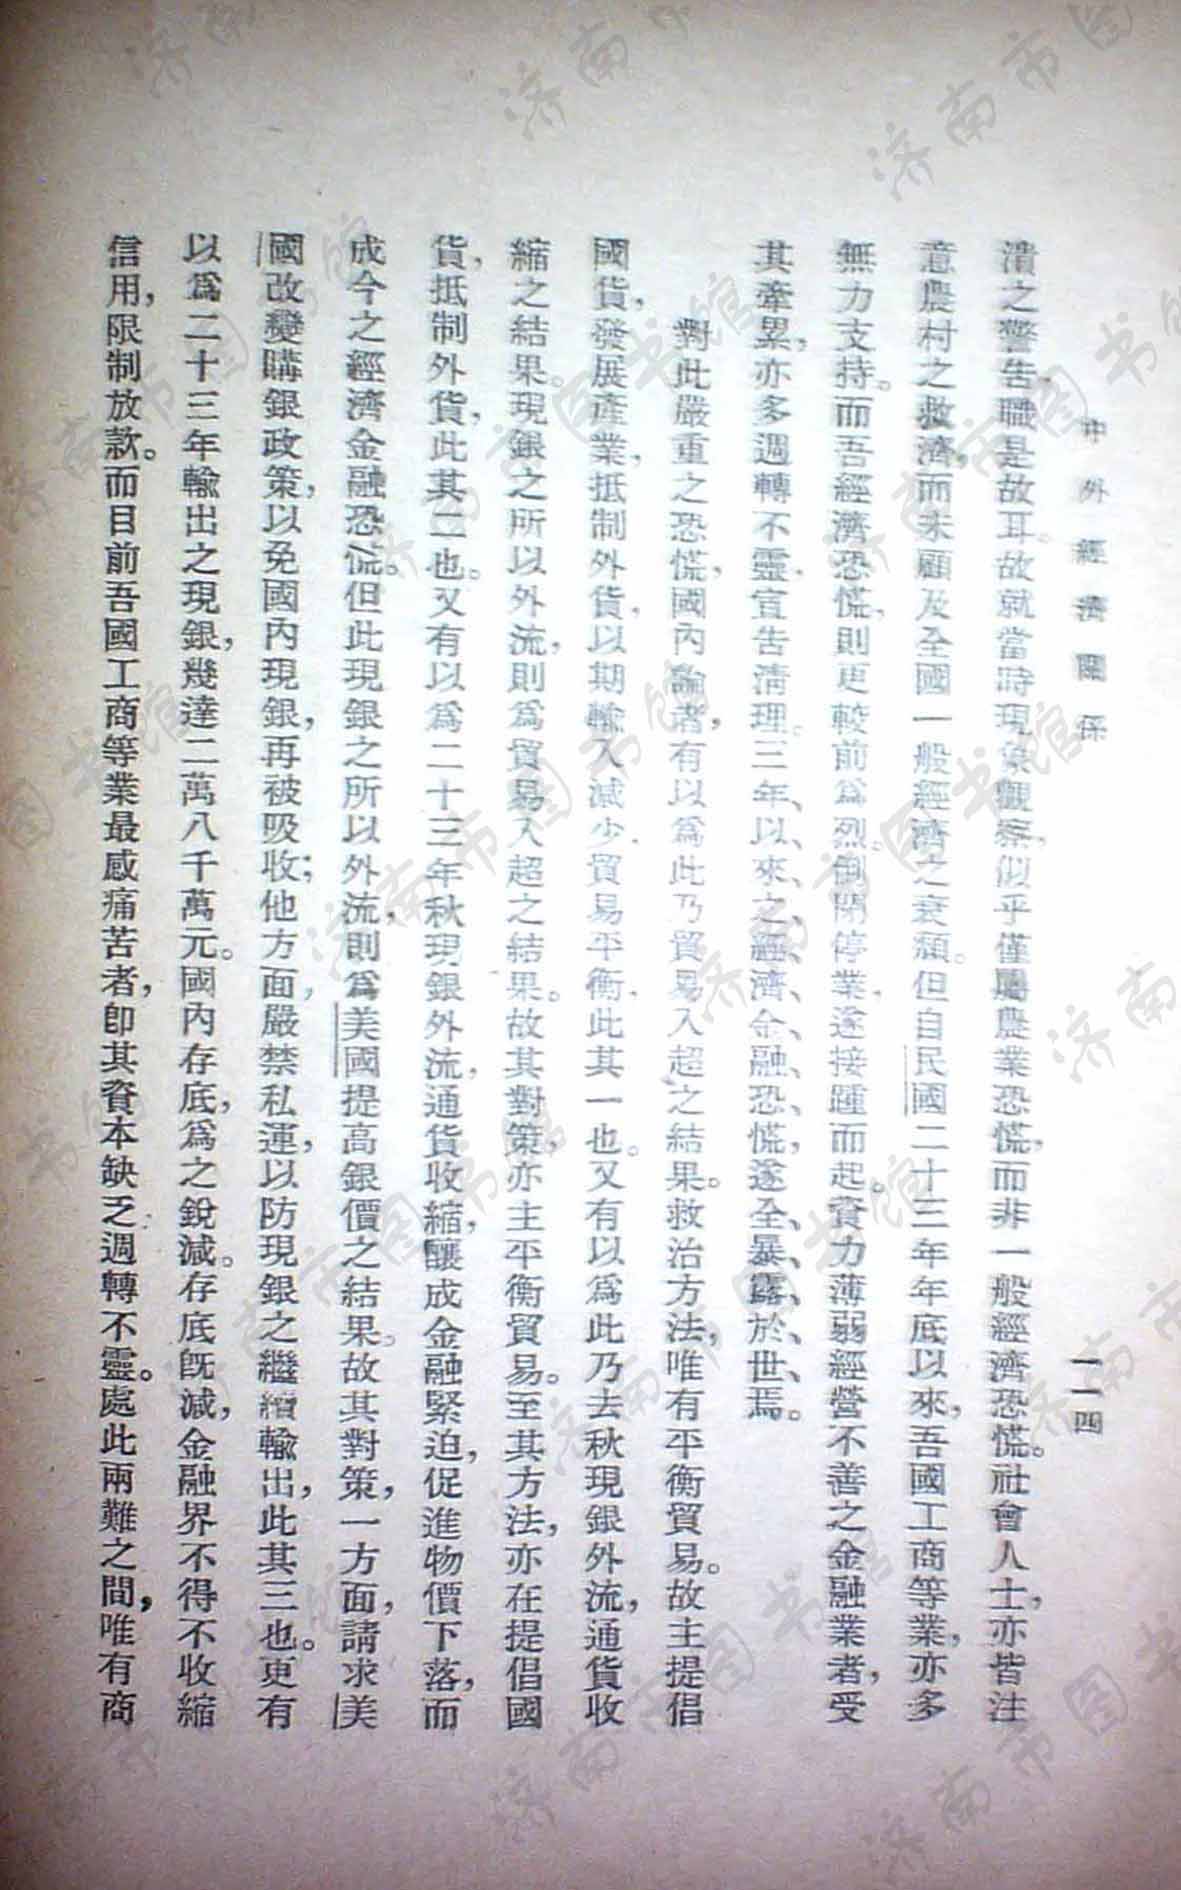 中外經濟關係
一一四
潰之警告,職是故耳。故就當時現象觀察,似乎僅屬農業恐慌,而非一般經濟恐慌。社會人士,亦皆注
意農村之救濟,而未顧及全國一般經濟之衰頹。但自民國二十三年年底以來,吾國工商等業,亦多
無力支持。而吾經濟恐慌,則更較前爲烈。倒閉停業,遂接踵而起。資力薄弱經營不善之金融業者,受
其牽累,亦多週轉不靈,宣告清理。三年、以、來、之、經、濟、金、融、恐、慌,遂、全、暴、露、於、世、焉。
對此嚴重之恐慌,國內論者,有以爲此乃貿易入超之結果。救治方法,唯有平衡貿易。故主提倡
國貨,發展產業,抵制外貨,以期輸入減少,貿易平衡,此其一也。又有以爲此乃去秋現銀外流,通貨收
縮之結果。現銀之所以外流,則爲貿易入超之結果。故其對策,亦主平衡貿易。至其方法,亦在提倡國
貨,抵制外貨,此其二也。又有以爲二十三年秋現銀外流,通貨收縮,釀成金融緊迫,促進物價下落,而
成今之經濟金融恐慌。但此現銀之所以外流,則爲美國提高銀價之結果。故其對策,一方面,請求美
國改變購銀政策,以免國內現銀,再被吸收;他方面,嚴禁私運,以防現銀之繼續輸出,此其三也。更有
以爲二十三年輸出之現銀,幾達二萬八千萬元。國內存底,爲之銳減。存底既減,金融界不得不收縮
信用,限制放款。而目前吾國工商等業最感痛苦者,即其資本缺乏週轉不靈。處此兩難之間,唯有商
济南市图书馆